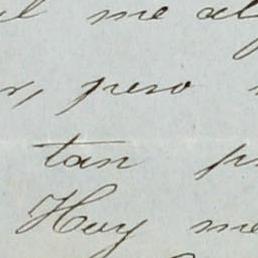 me al
r, pero
tan p
Hay me